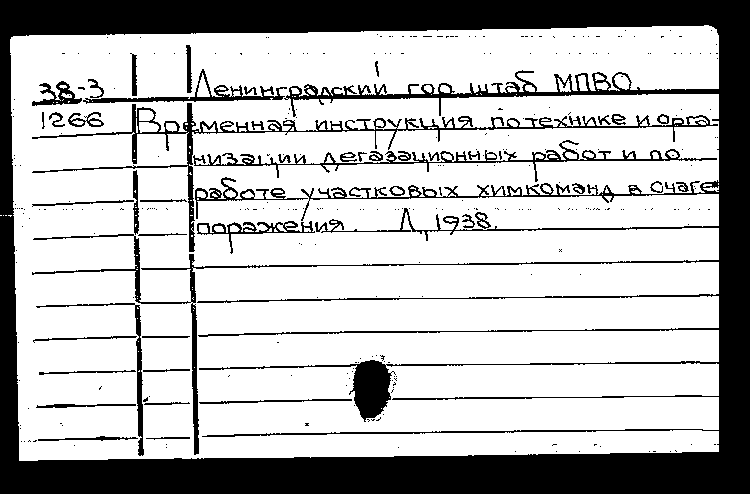 38-3 Ленинградский гор. штаб МПВО.
1266 Временная инструкция по технике и орга-
низации дегазационных работ и по
работе участковых химкоманд в очаге
поражения. Л., 1938.